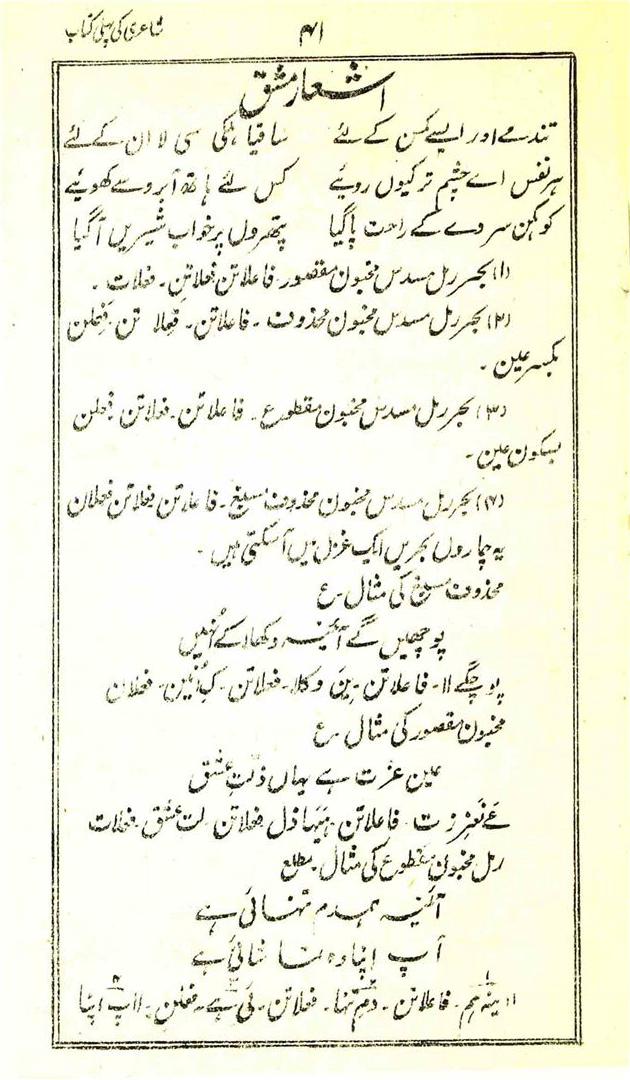 شاعری کی پہلی کتاب
۴۱
اشعار مشق
تند مے اور ایسے کمسن کے لئے ساقیا ہلکی سی لا ان کے لئے
ہر نفس اے چشم تر کیوں روئیے کس لئے ہاتھ آبرو سے کھوئیے
کوہکن سر دے کے راحت پاگیا پتھروں پر خواب شیریں آگیا
(۱) بحر رمل مسدس مخبون مقصور فاعلاتن فعلاتن۔ فعلات۔
(۲) بحر رمل مسدس مخبون محذوف۔ فاعلاتن۔ فعلاتن۔ فعلن
بکسر عین۔
(۳) بحر رمل مسدس مخبون مقطوع۔ فاعلاتن۔ فعلاتن فعلن
بسکون عین۔
(۴) بحر رمل مسدس مخبون محذوف مسبغ۔ فاعلاتن فعلاتن فعلان
یہ چاروں بحریں ایک غزل میں آسکتی ہیں۔
محذوف مسبغ کی مثال۔ ع
پوچھیں گے آئینہ دکھلا کے اُنہیں
پو چگے اا۔ فاعلاتن۔ ین وکلا۔ فعلاتن۔ ک اُنین۔ فعلان
مخبون مقصور کی مثال۔ ع
عین عزت ہے یہاں ذلتِ عشق
عے نعزز ت۔ فاعلاتن ہیہا ذل فعلاتن۔ لت عشق۔ فعلات
رمل مخبون مقطوع کی مثال۔ مطلع
آئینہ ہمدم تنہائی ہے
آپ اپنا وہ تماشائی ہے
اا ینہ ہم۔ فاعلاتن۔ دم تنہا۔ فعلاتن۔ ئی ہے۔ فعلن۔ ااپ اپنا